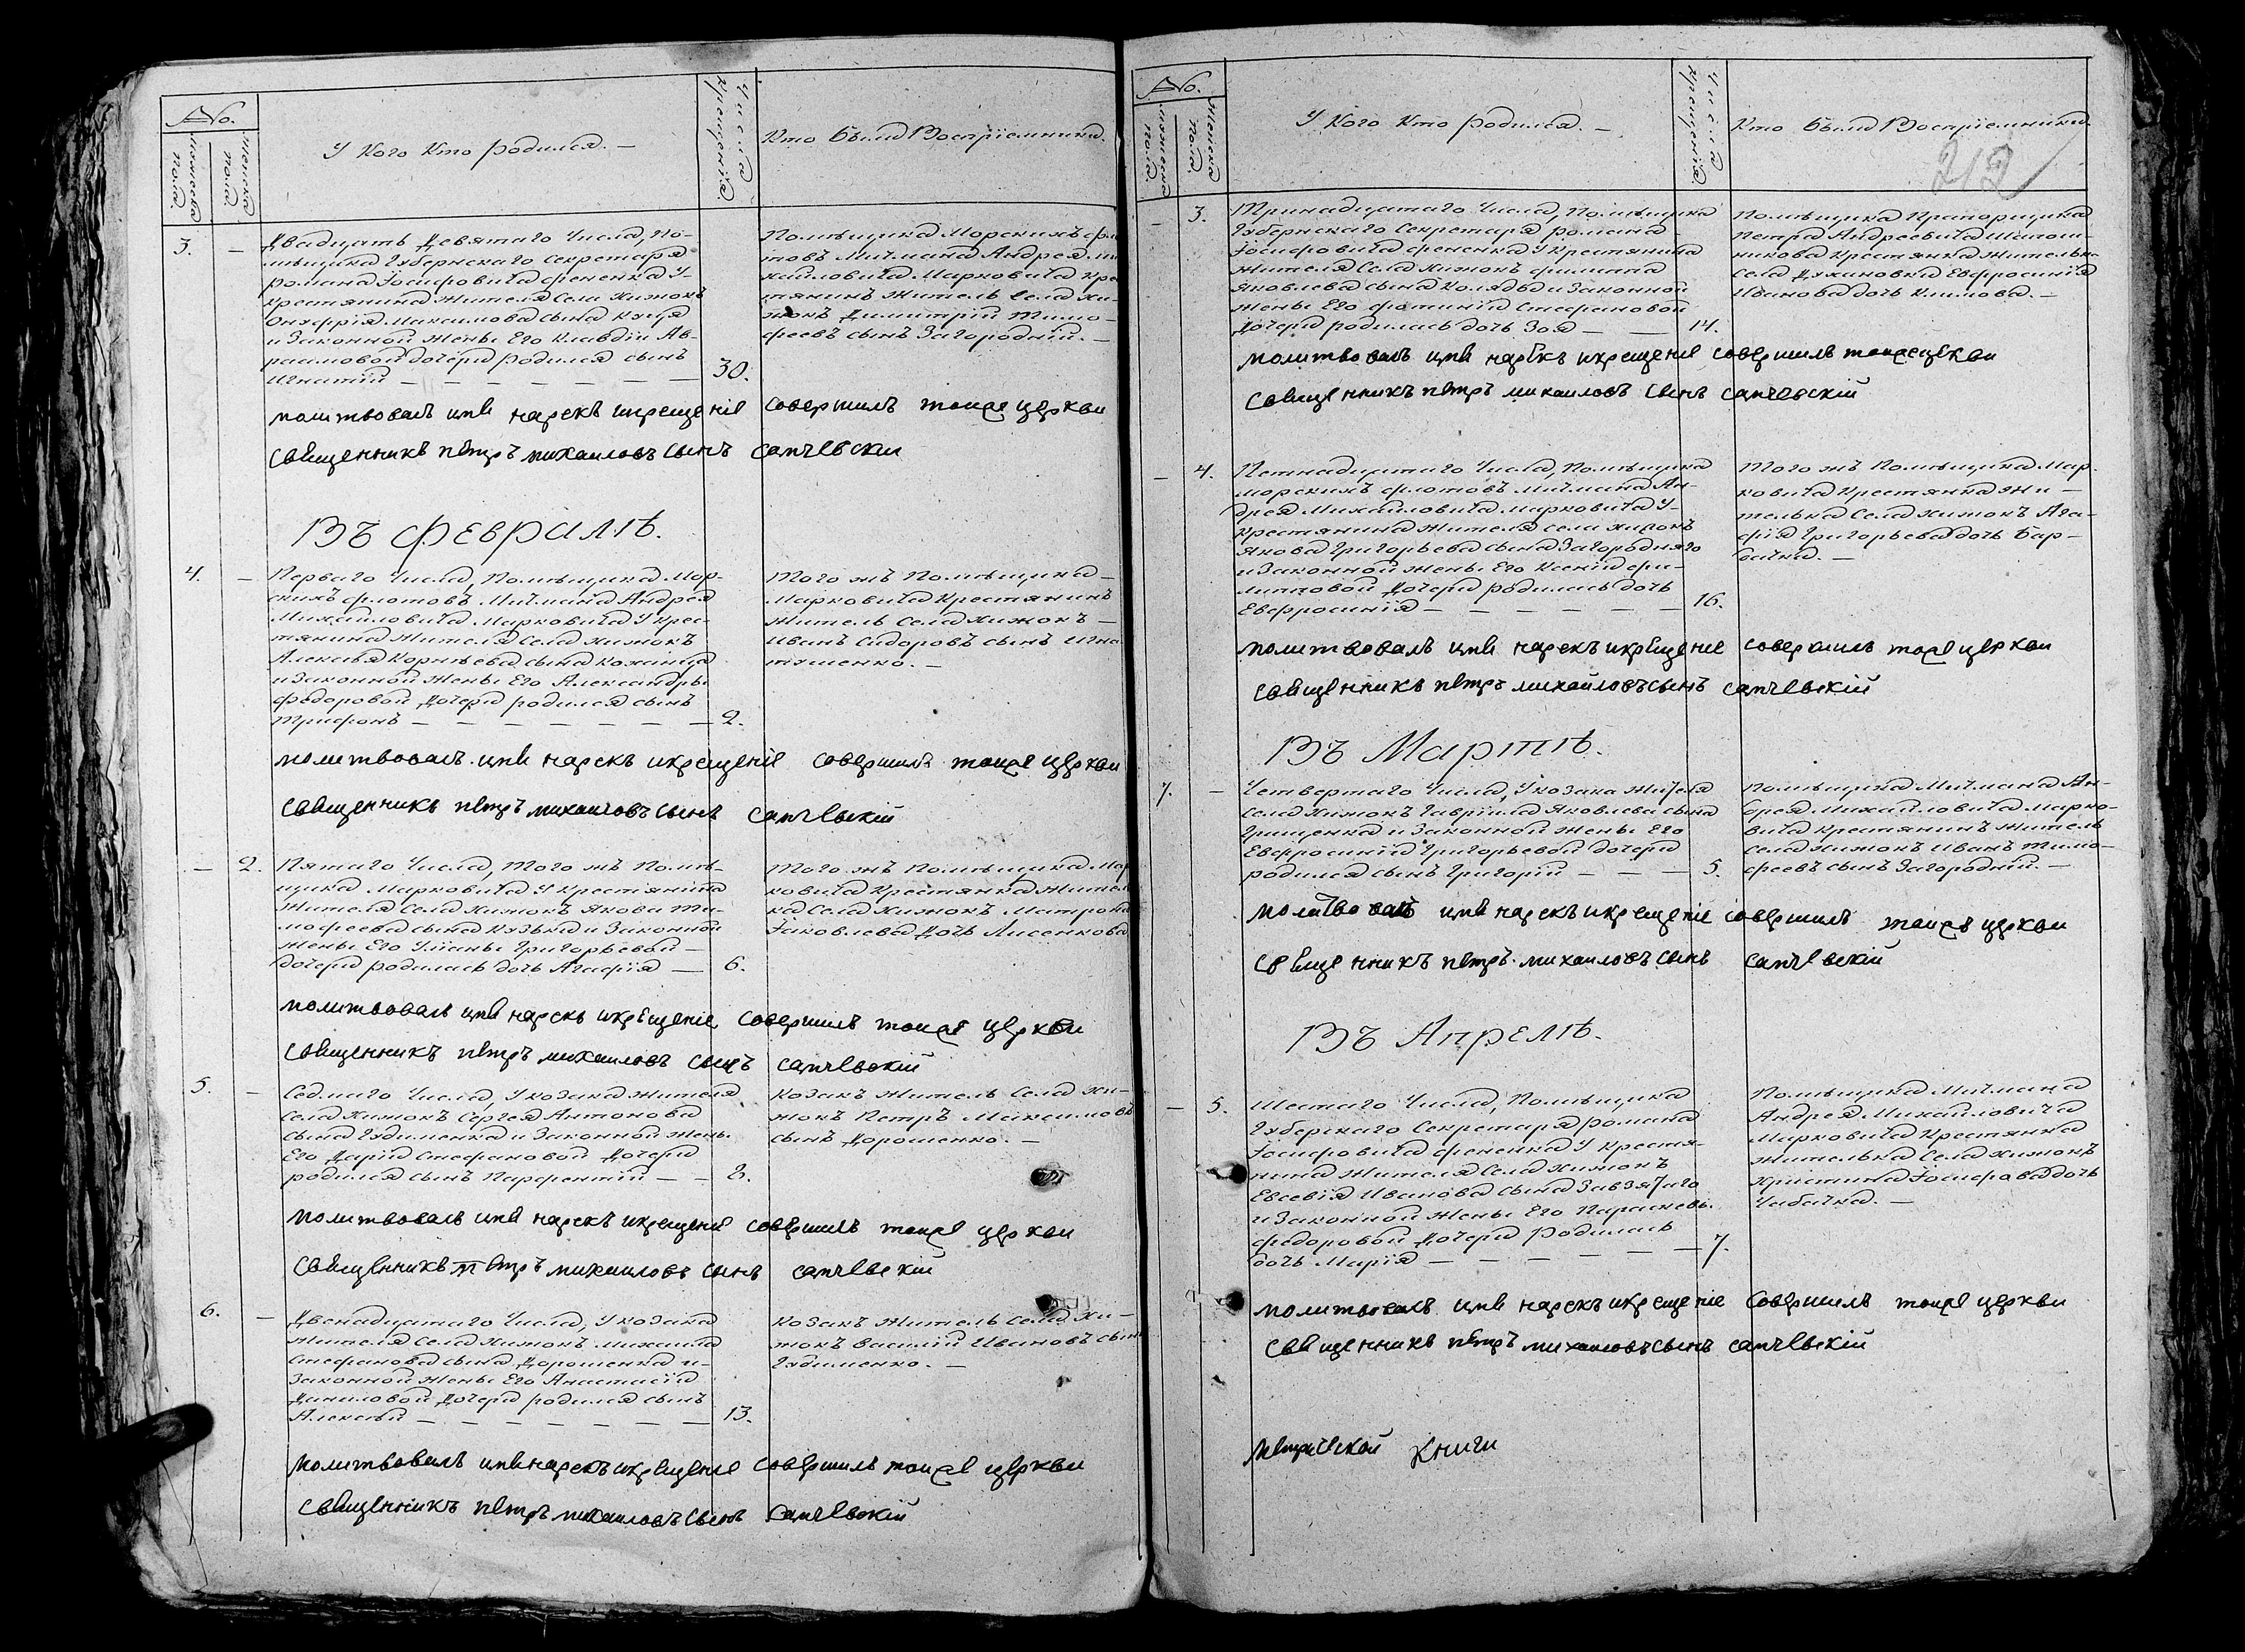 No.
мужеска пола.
женска пола.
У Кого Кто родился. —
Числа Крещенія.
Кто былъ Воспріемникъ.
3. —
Двадцать Девятаго Числа, По-
мѣщика Губернскаго Секретаря
Романа Іосифовича Фененка У
крестянина Жителя Села Хижокъ
Онуфрія Максимова сына Куця
и Законной жены Его Клавдіи Ав-
раамовой дочери родился сынъ
Игнатій — — — — — — — 30.
Помѣщика Морскихъ фло
товъ Мичмана Андрея Ми
хайловича Марковича кре
стянинъ житель Села Хи-
жокъ Димитрій Тимо-
феевъ сынъ Загородній. —
молитвовалъ имя нарекъ икрещеніе совершилъ тоя же церкви
священникъ петръ михаиловъ сынъ сапчевскіи
Въ Февралѣ.
4. —
Перваго Числа, Помѣщика Мор-
скихъ флотовъ Мичмана Андрея
Михайловича Марковича У крес-
тянина Жителя Села Хижокъ
Алексѣя Корнѣева сына
и Законной жены Его Александры
Федоровой Дочери родился сынъ
Трифонъ — — — — — — — 2.
Того жъ Помѣщика —
Марковича Крестянинъ
житель Села Хижокъ —
Иванъ Сидоровъ сынъ Игна
тушенко. —
молитвовалъ имя нарекъ икрещеніе совершилъ тоя же церкви
священникъ петръ михаиловъ сынъ сапчевскій
— 2.
Пятаго Числа, Того жъ Помѣ-
щика Марковича У Крестянина
жителя Села Хижокъ Якова Ти-
мофеева сына Кузьки и Законной
жены Его Ульяны Григорьевой —
дочери родилась дочь Агафія — 6.
Того жъ Помѣщика Мар
ковича Крестянка жител
ка Села Хижокъ Матрона
Іаковлева Дочь Лисенкова
молитвовалъ имя нарекъ икрещеніе совершилъ тоя же церкви
священникъ петръ михаиловъ сынъ сапчевскій
5. —
Седмаго Числа, У козака жителя
Села Хижокъ Сергея Антонова
сына Гудименка и Законной жены
Его Даріи Стефановой Дочери
родился сынъ Парфентій — — 8.
Козакъ житель Села Хи-
жокъ Петръ Максимовъ
сынъ Дорошенко. —
молитвовалъ имя нарекъ икрещеніе совершилъ тоя же церкви
священникъ петръ михаиловъ сынъ сапчевскій
6. —
Двенадцатаго Числа, У козака
жителя Села Хижокъ михаила
Стефанова сына Дорошенка и-
Законной жены Его Анастасіи
Даниловой Дочери родился сынъ
Алексѣй — — — — — — — 13.
Козакъ житель Села Хи-
жокъ Василій Ивановъ сынъ
Гудименко. —
молитвовалъ имя нарекъ икрещеніе совершилъ тоя же церкви
священникъ петръ михаиловъ сынъ сапчевскій
No.
мужеска пола.
женска пола.
У Кого Кто родился. —
Числа Крещенія.
Кто былъ Воспріемникъ.
212
— 3.
Тринадцатаго Числа, Помѣщика
Губернскаго Секретаря Романа
Іосифовича Фененка У Крестянина
жителя Села Хижокъ Филипа
Яковлева сына Коляды и Законной
жены Его Фотиніи Стефановой
Дочери родилась дочь Зоя — — 14.
Помѣщика Прапорщика
Петра Андреевича
никова Крестянка жителька
Села Духановки Евфросинія
Иванова дочь Климова. —
молитвовалъ имя нарекъ икрещеніе совершилъ тоя же церкви
священникъ петръ михаиловъ сынъ сапчевскій
— 4.
Петнадцатаго Числа, Помѣщика
морскихъ флотовъ Мичмана Ан-
дрея Михайловича Марковича У-
Крестянина Жителя Села Хижокъ
Якова Григорьева сына Загородняго
и Законной жены Его Ксеніи Фи-
липповой Дочери родилась дочь
Евфросинія — — — — — — 16.
Того жъ Помѣщика Мар-
ковича Крестянка жи —
телька Села Хижокъ Ага-
фія Григорьева дочь Бар-
 —
молитвовалъ имя нарекъ икрещеніе совершилъ тоя же церкви
священникъ петръ михайловъ сынъ сапчевскій
Въ Мартѣ.
7. —
Четвертаго Числа, У козака Жителя
Села Хижокъ Гавріила Яковлева сына
Грищенка и Законной жены Его
Евфросиніи Григорьевой дочери
родился сынъ Григорій — — — 5.
Помѣщика Мичмана Ан-
дрея Михайловича Марко-
вича Крестянинъ житель
Села Хижокъ Иванъ Тимо-
феевъ сынъ Загородній. —
молитвовалъ имя нарекъ икрещеніе совершилъ тоя же церкви
священникъ петръ михаиловъ сынъ сапчевскій
Въ Апрелѣ.
— 5.
Шестаго Числа, Помѣщика
Губерскаго Секретаря Романа
Іосифовича Фененка У Крестя-
нина жителя Села Хижокъ
Евсевія Иванова сына Завзятаго
и Законной жены Его Параскевы
Федоровой Дочери Родилась
дочь Марія — — — — — — 7.
Помѣщика Мичмана
Андрея Михайловича
Марковича Крестянка
жителька Села Хижокъ
Христина Іосифова дочь
Чабачка. —
молитвовалъ имя нарекъ икрещеніе совершилъ тоя же церкви
священникъ петръ михаиловъ сынъ сапчевскій
метрической книги